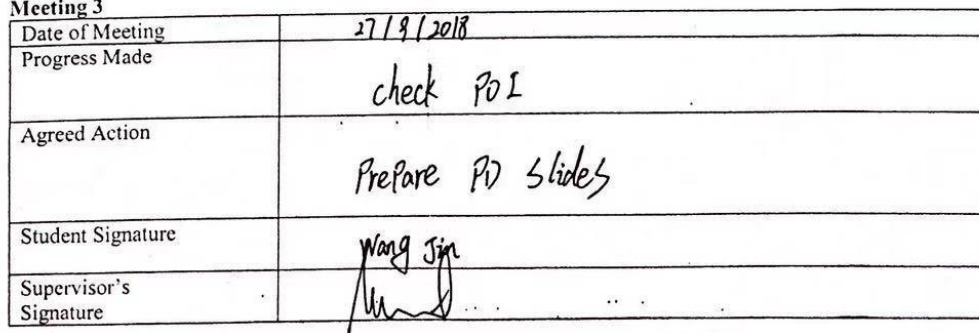 Meeting 3
Date of Meeting 27/9/2018
Progress Made
check POI
Agreed Action
Prepare PD slides
Student Signature
Wang Jin
Supervisor's
Signature